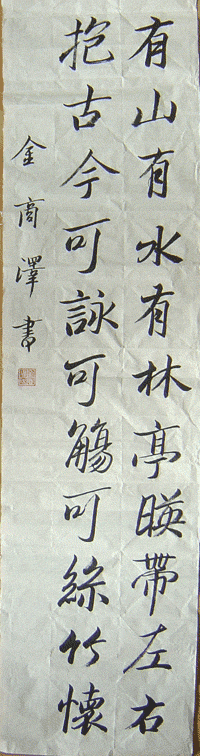 有山有水有林亭暎帶左右
抱古今可詠可觴可絲竹懷
金商澤書